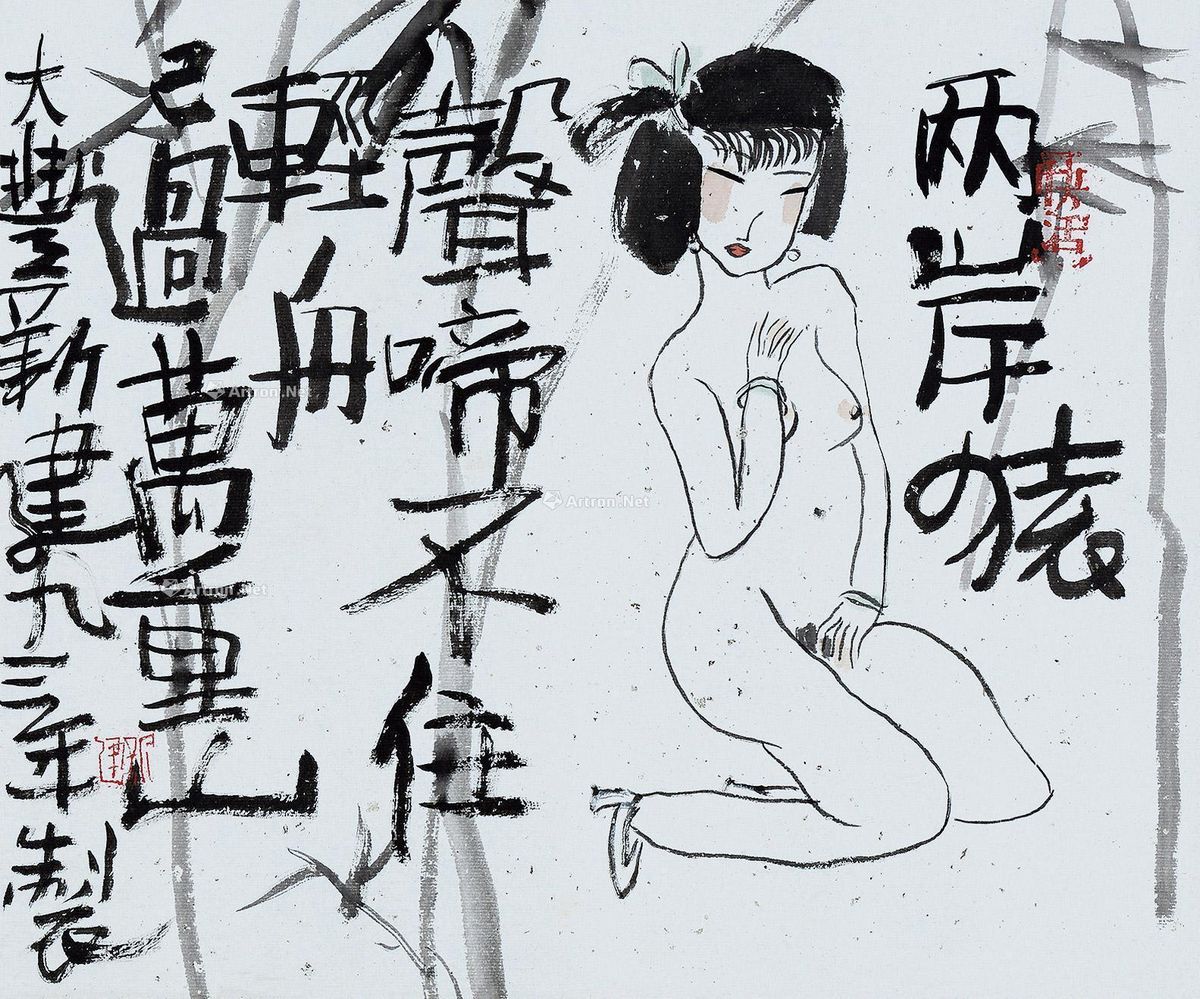 两岸猿
聲啼不住
輕舟
已過萬重山
大豐新建九三年製
Artron.Net
Artron.Net
Artron.Net